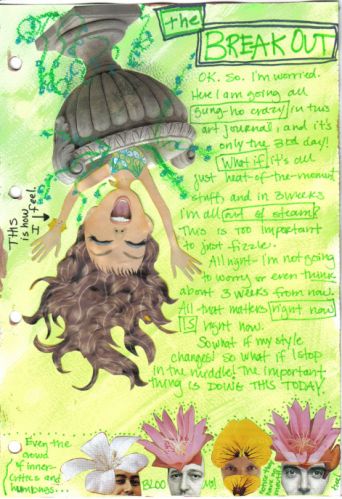 the
BREAK OUT
OK. So. I'm worried.
Here I am going all
gung-ho crazy in this
art journal, and it's
only the 3rd day!
What if it's all
just heat-of-the-moment
stuff, and in 3 weeks
I'm all out of steam?
This is TOO important
to just fizzle.
All right - I'm not going
to worry or even think
about 3 weeks from now.
All that matters right now
IS right now.
So what if my style
changes! So what if I stop
in the middle! The important
thing is DOING THIS TODAY.
THIS
is how
I feel.
Even the
crowd
of inner-
critics and
humbugs...
BLOO